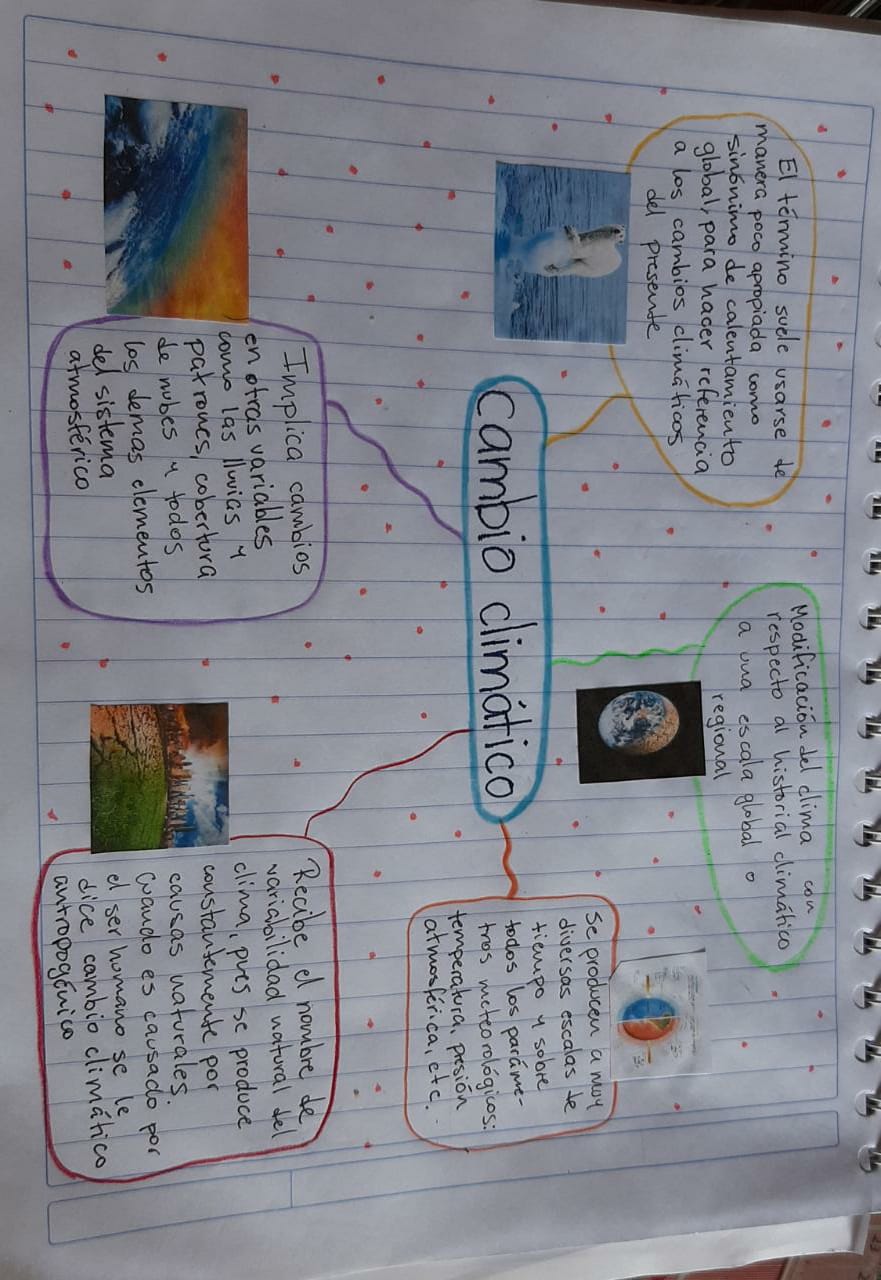 El término suele usarse de
manera poco apropiada como
sinónimo de calentamiento
global, para hacer referencia
a los cambios climáticos
del presente
Modificación del clima con
respecto al historial climático
a una escala global o
regional
Cambio climático
Se producen a muy
diversas escalas de
tiempo y sobre
todos los paráme-
tros meteorológicos:
temperatura, presión
atmosférica, etc.
Implica cambios
en otras variables
como las lluvias y
patrones, cobertura
de nubes y todos
los demas elementos
del sistema
atmosférico
Recibe el nombre de
variabilidad natural del
clima, pues se produce
constantemente por
causas naturales.
Cuando es causado por
el ser humano se le
dice cambio climático
antropogénico